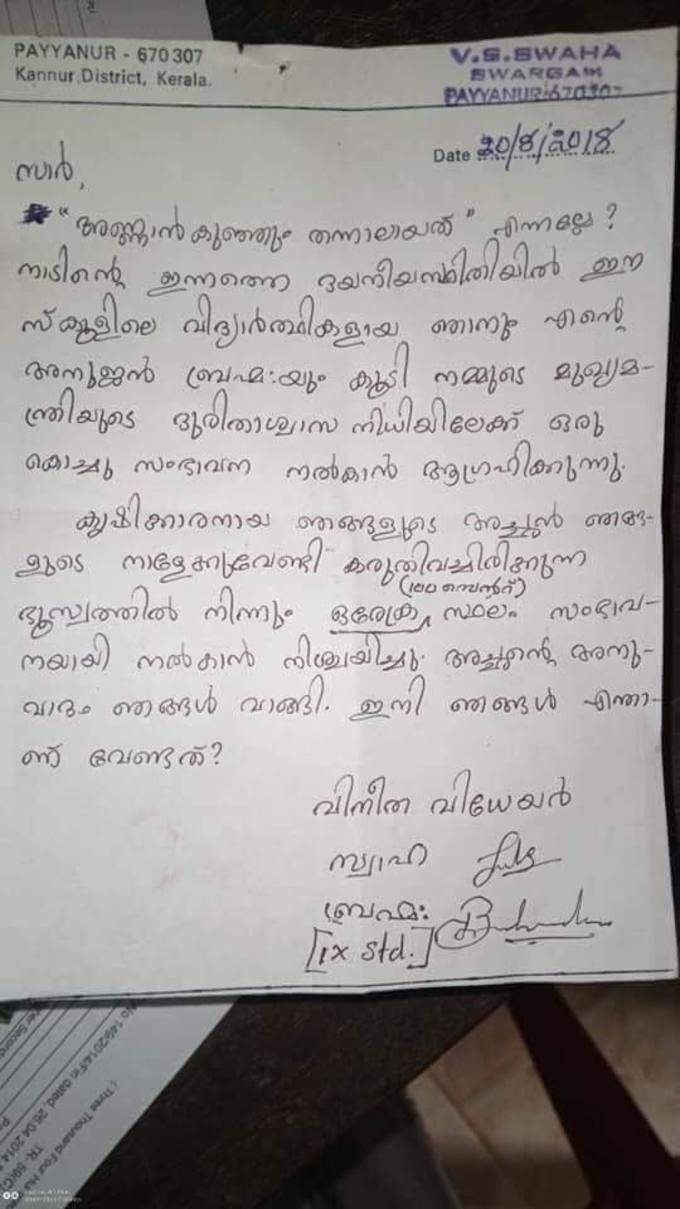 PAYYANUR - 670 307
Kannur District, Kerala.
V.S.SWAHA
SWARGAM
PAYYANUR-670307
Date 20/8/2018
സാർ,
"അണ്ണാൻകുഞ്ഞും തന്നാലായത്" എന്നല്ലേ?
നാടിന്റെ ഇന്നത്തെ ദയനീയസ്ഥിതിയിൽ ഈ
സ്കൂളിലെ വിദ്യാർത്ഥികളായ ഞാനും എന്റെ
അനുജൻ ബ്രഹ്മ:യും കൂടി നമ്മുടെ മുഖ്യമ-
ന്ത്രിയുടെ ദുരിതാശ്വാസ നിധിയിലേക്ക് ഒരു
കൊച്ചു സംഭാവന നൽകാൻ ആഗ്രഹിക്കുന്നു.
കൃഷിക്കാരനായ ഞങ്ങളുടെ അച്ഛൻ ഞങ്ങ-
ളുടെ നാളേക്കുവേണ്ടി കരുതിവച്ചിരിക്കുന്ന
(100 സെൻറ്)
ഭൂസ്വത്തിൽ നിന്നും ഒരേക്ര സ്ഥലം സംഭാവ-
നയായി നൽകാൻ നിശ്ചയിച്ചു. അച്ഛന്റെ അനു-
വാദം ഞങ്ങൾ വാങ്ങി. ഇനി ഞങ്ങൾ എന്താ-
ണ് വേണ്ടത്?
വിനീത വിധേയർ
സ്വാഹ
ബ്രഹ്മ:
[IX Std.]
(Three Thousand Four Hu
dated, 26.04.2014